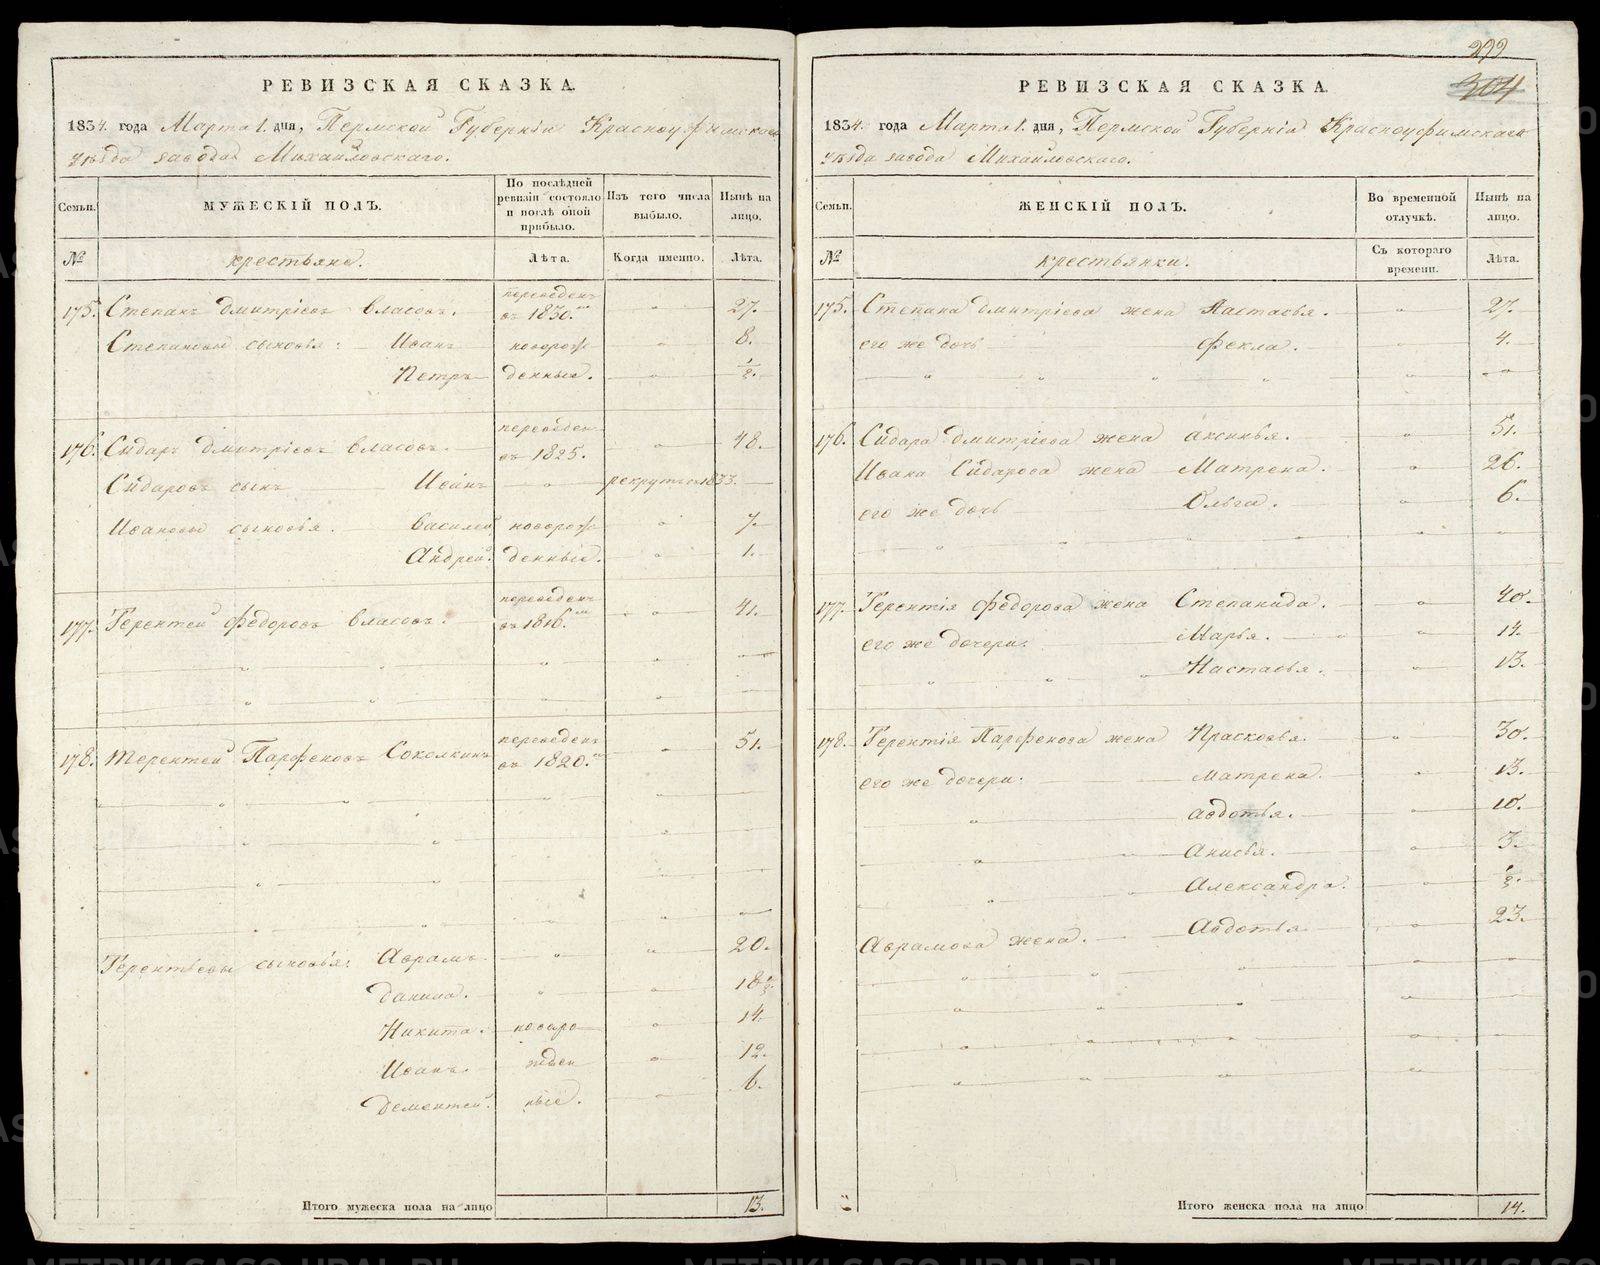 РЕВИЗСКАЯ СКАЗКА.
1834. года Марта 1. дня, Пермской Губерніи Красноуфимскаго
уѣзда завода Михайловскаго.
Семьи. МУЖЕСКІЙ ПОЛЪ. По последней ревизіи состояло и послѣ оной прибыло. Изъ того числа выбыло. Нынѣ на лицо.
№ крестьяне. Лѣта. Когда именно. Лѣта.
175. Степанъ Дмитріевъ Власовъ. переведенъ въ 1830. " 27.
Степановы сыновья: Иванъ новорож " 8.
Петръ денные. " 1/2.
176. Сидаръ Дмитріевъ Власовъ. переведенъ въ 1825. " 48.
Сидаровъ сынъ Иванъ " рекрутъ 1833.
Ивановы сыновья. Василей новорож " 7.
Андрей. денные. " 1.
177. Терентей Федоровъ Власовъ. переведенъ въ 1816. " 41.
178. Терентей Парфеновъ Соколкинъ переведенъ въ 1820. " 51.
Терентьевы сыновья: Аврамъ " " 20.
Данила. " " 18 1/2.
Никита. новоро " 14.
Иванъ. жден " 12.
Дементей. ные. " 6.
Итого мужеска пола на лицо 13.
292
304
РЕВИЗСКАЯ СКАЗКА.
1834. года Марта 1. дня, Пермской Губерніи Красноуфимскаго
уѣзда завода Михайловскаго.
Семьи. ЖЕНСКІЙ ПОЛЪ. Во временной отлучкѣ. Нынѣ на лицо.
№ крестьянки. Съ котораго времени. Лѣта.
175. Степана Дмитріева жена Настасья. " 27.
его же дочь Фекла. " 4.
176. Сидара Дмитріева жена Аксинья. " 51.
Ивана Сидарова жена Матрена. " 26.
его же дочь Ольга. " 6.
177. Терентія Федорова жена Степанида. " 40.
его же дочери: Марья. " 14.
Настасья. " 13.
178. Терентія Парфенова жена Прасковья. " 30.
его же дочери: Матрена. " 13.
Авдотья. " 10.
Анисья. " 3.
Александра. " 1/2.
Аврамова жена. Авдотья " 23.
Итого женска пола на лицо 14.
METRIKI.GASO-URAL.RU